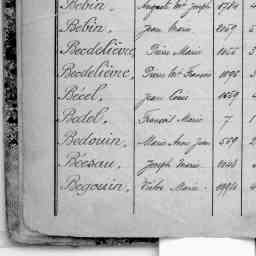 Bébin, Auguste Me Joseph
Bébin, Jean Marie 2059 5
Becdelièvre, Pierre Marie
Becdelièvre, Pierre Me François
Bécel, Jean Louis
Bedel, François Marie 7 1
Bedouin, Marie Anne Jean 509 2
Béesau, Joseph Marie
Bégouin, Victor Marie